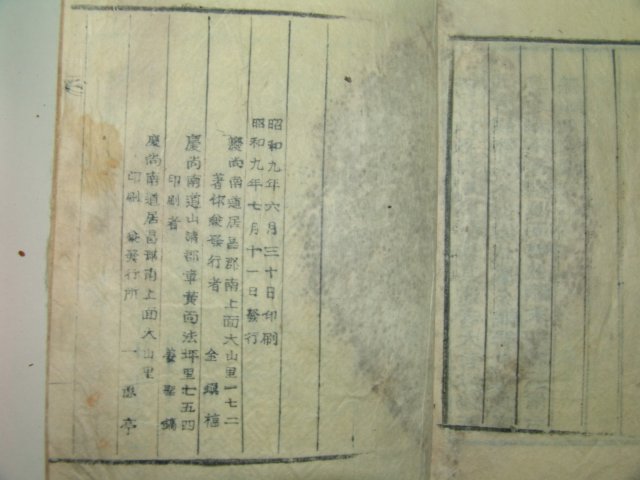 昭和九年六月三十日印刷
昭和九年七月十一日發行
慶尚南道居昌郡南上面大山里一七二
著作兼發行者 金
慶尚南道山淸郡車黃面法坪里七五四
印刷者 姜聖鎬
慶尚南道居昌郡南上面大山里
印刷兼發行所 一源亭